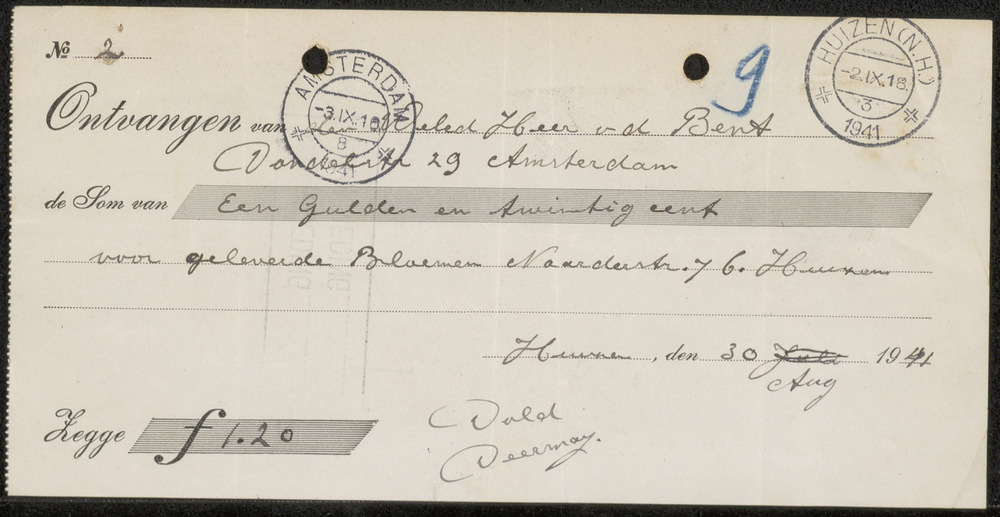 No 2
AMSTERDAM
-3.IX.18
8
1941
9
HUIZEN (N.H.)
-2.IX.18.
3
1941
Ontvangen van den Heer v d Bent
Vondelstr 29 Amsterdam
de Som van Een Gulden en twintig cent
voor geleverde Bloemen Naarderstr. 76. Huizen
Huizen, den 30 Juli 1941
Aug
Zegge f 1.20
Vold